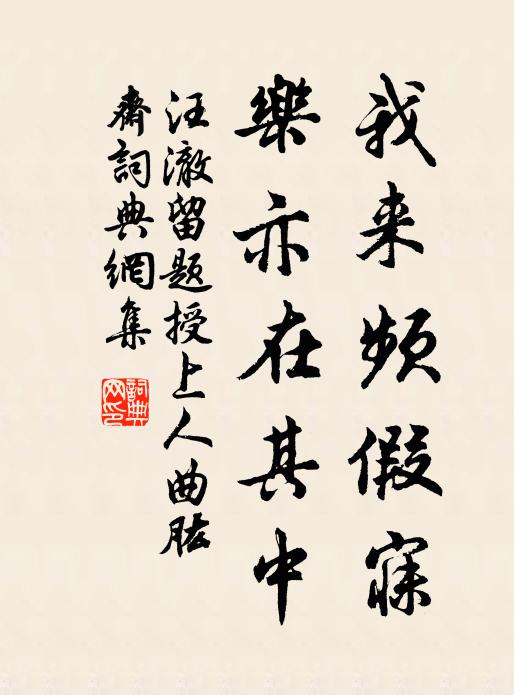 我来頻假寐
樂亦在其中
汪澈留题授上人曲肱
齋詞典網集
詞典網印